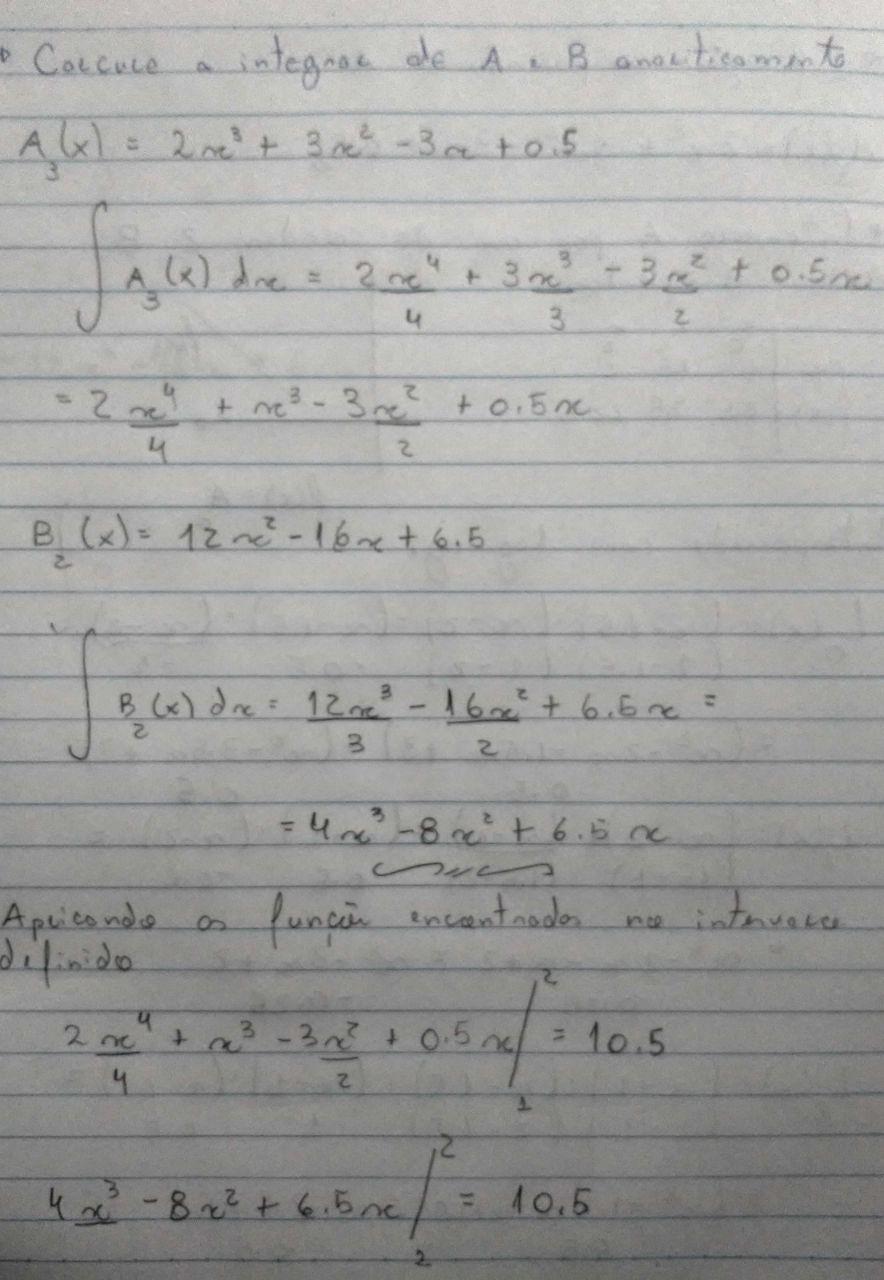 Calcule a integral de A e B analiticamente
A₃(x) = 2x³ + 3x² - 3x + 0.5
∫ A₃(x) dx = 2x⁴/4 + 3x³/3 - 3x²/2 + 0.5x
= 2x⁴/4 + x³ - 3x²/2 + 0.5x
B₂(x) = 12x² - 16x + 6.5
∫ B₂(x) dx = 12x³/3 - 16x²/2 + 6.5x =
= 4x³ - 8x² + 6.5x
Aplicando as função encontradas no intervalo
definido
2x⁴/4 + x³ - 3x²/2 + 0.5x |₁² = 10.5
4x³ - 8x² + 6.5x |₂² = 10.5